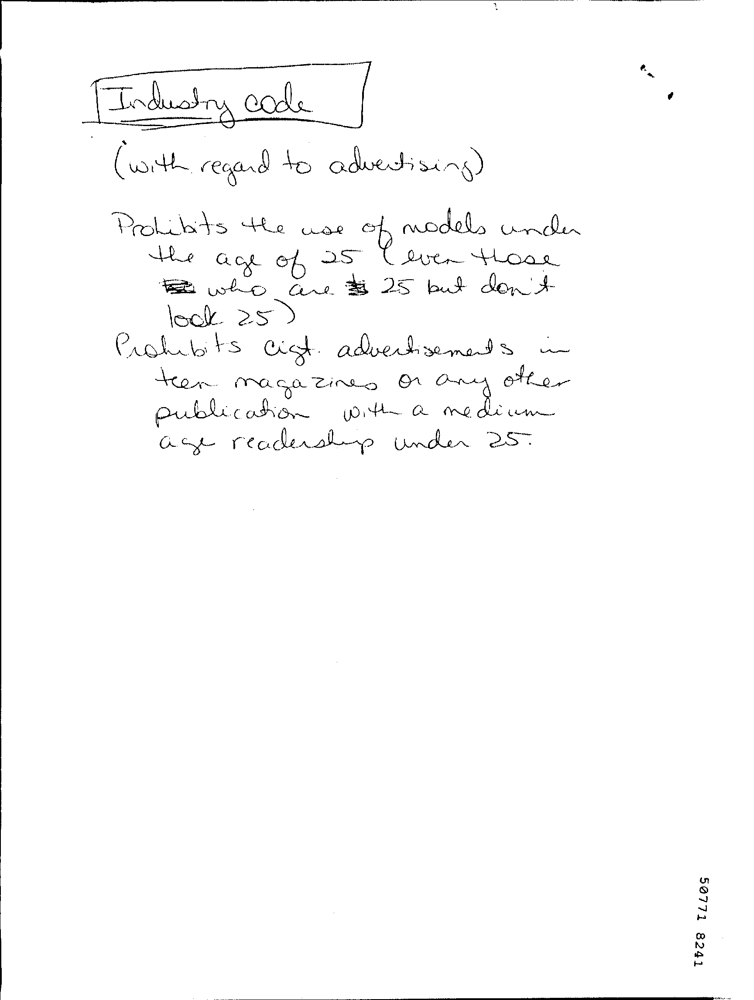 Industry code
(with regard to advertising)
Prohibits the use of models under
the age of 25 (even those
who are 25 but don't
look 25)
Prohibits cigt. advertisements in
teen magazines or any other
publication with a medium
age readership under 25.
50771 8241